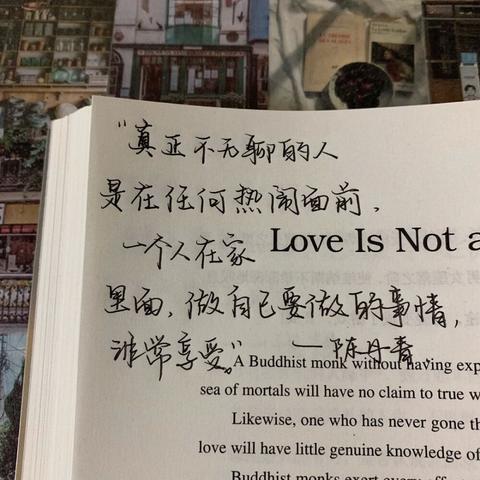 “真正不无聊的人
是在任何热闹面前，
一个人在家
Love Is Not a
里面，做自己要做的事情，
非常享受。”
——陈丹青
A Buddhist monk without having exp
sea of mortals will have no claim to true w
Likewise, one who has never gone th
love will have little genuine knowledge of
Buddhist monks exert every eff